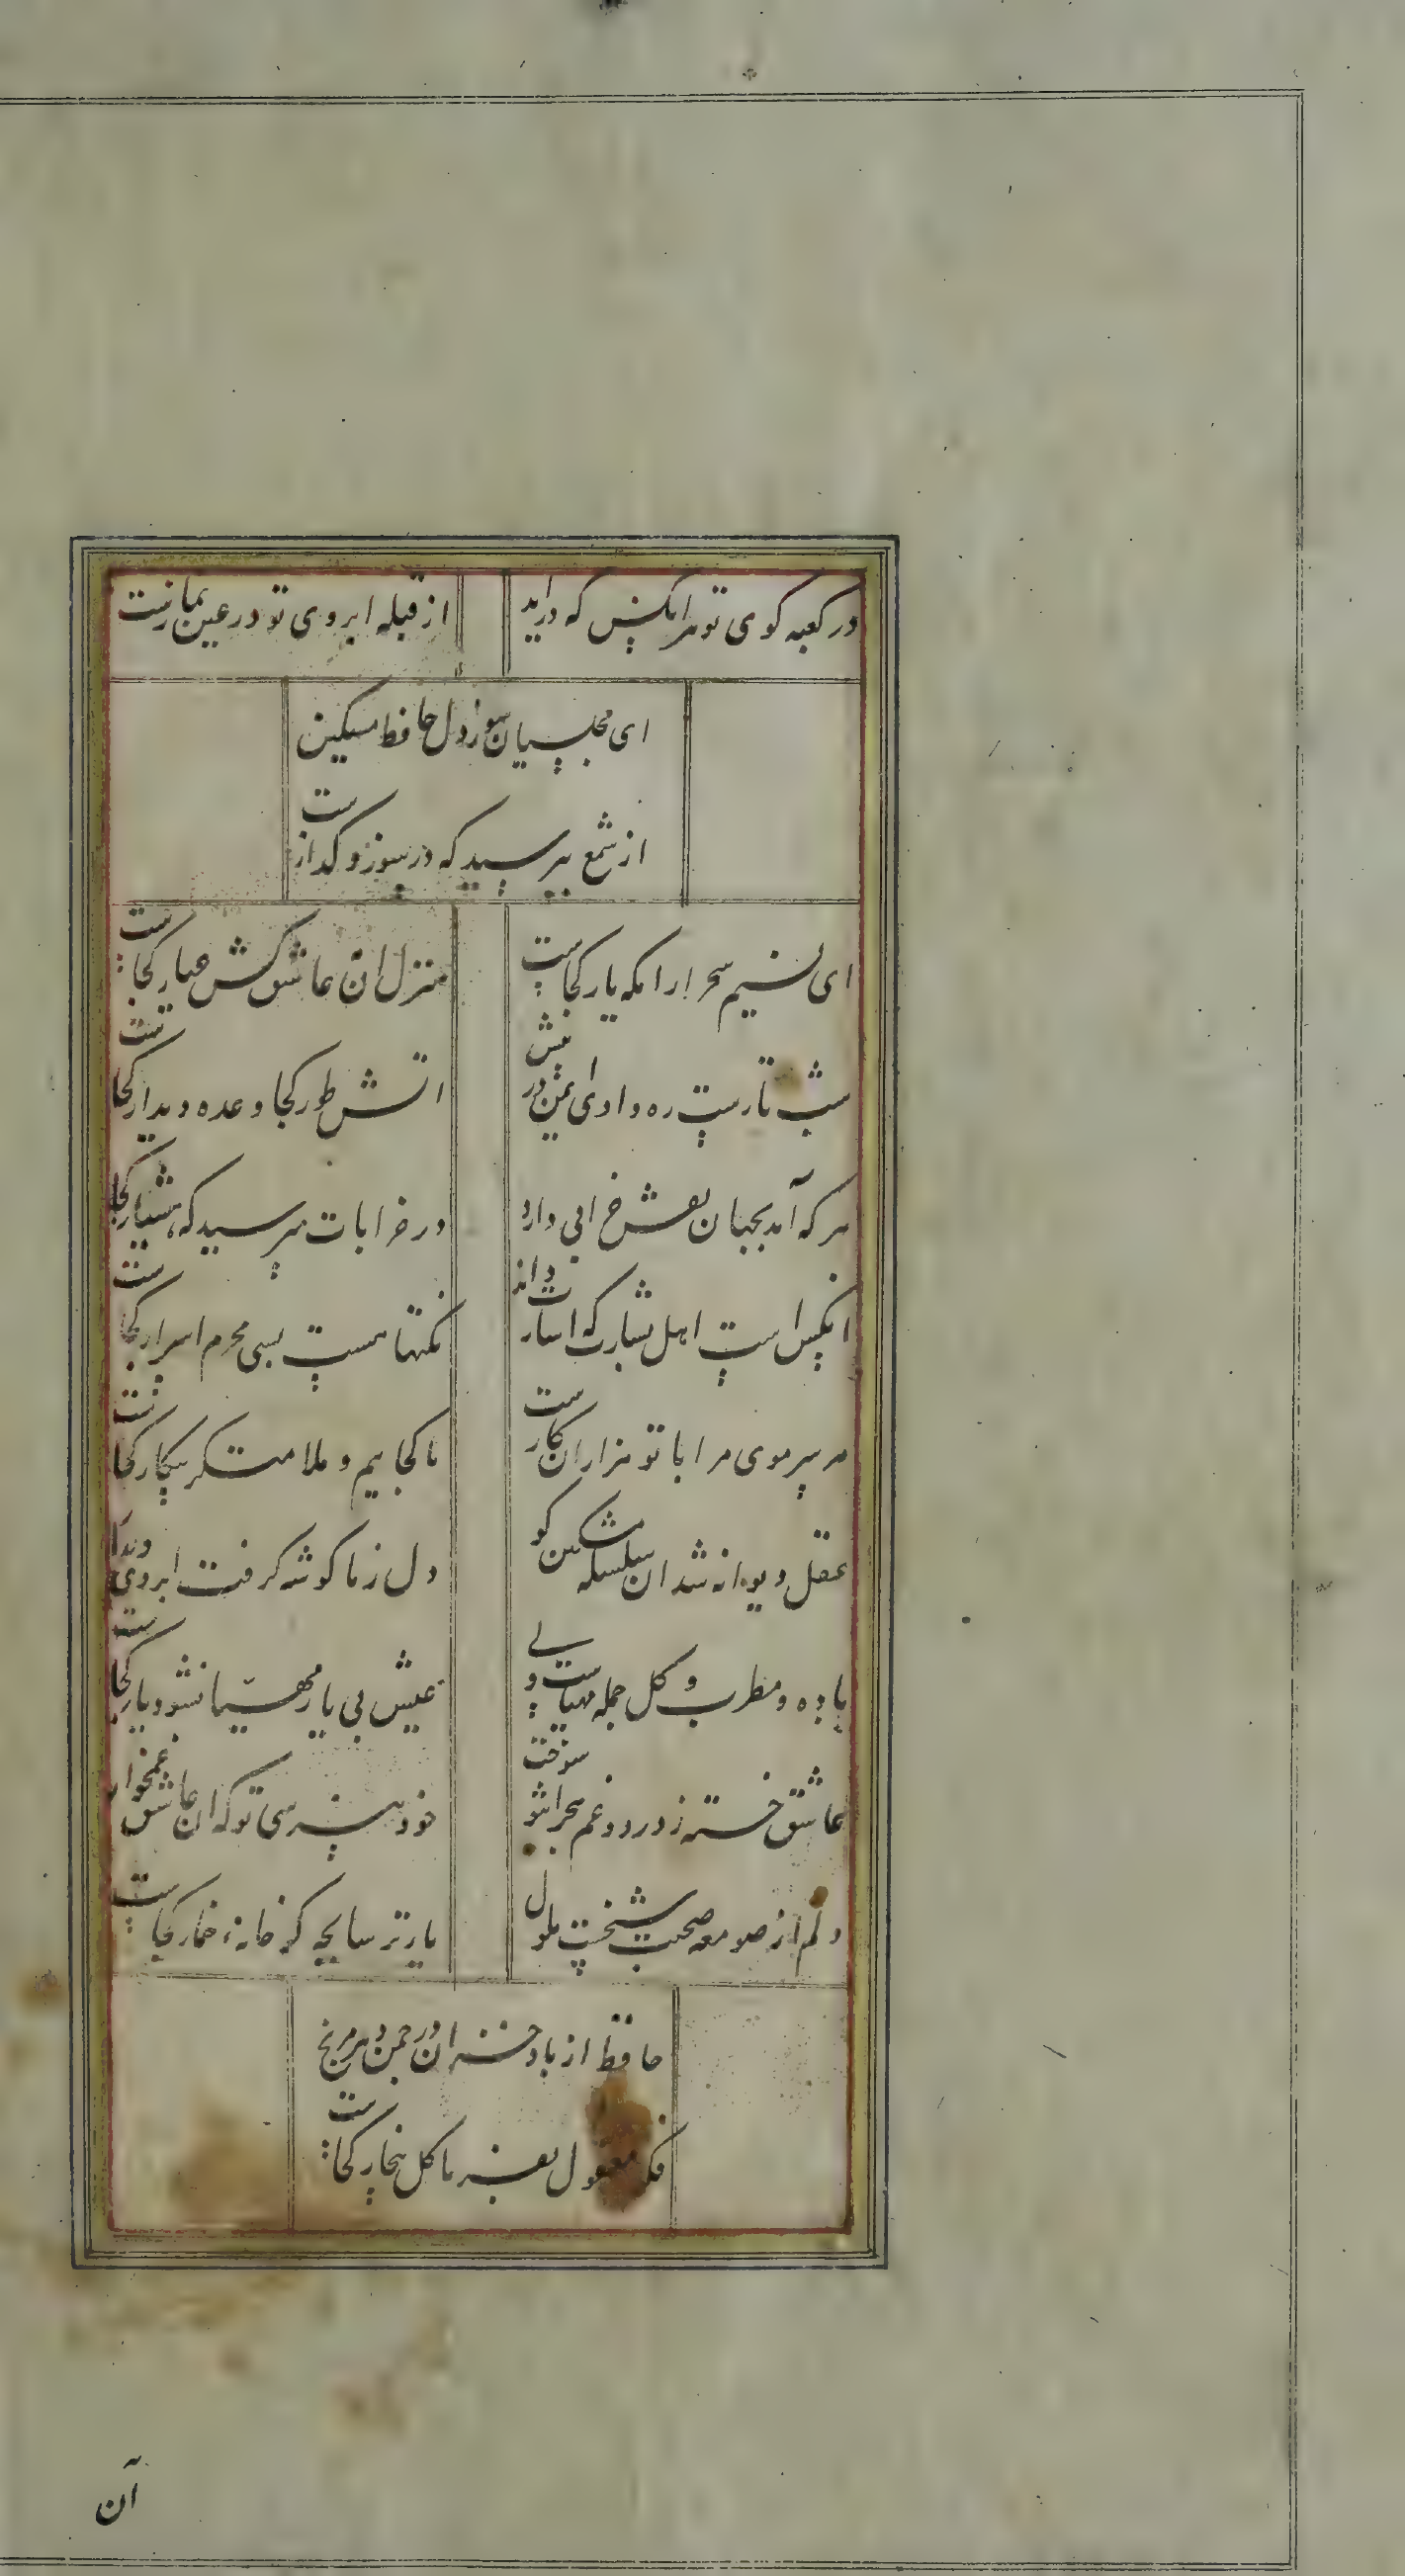 در کعبه کوی تو هر انکس که دراید
از قبله ابروی تو در عین نمازست
ای مجلسیان سوز دل حافظ مسکین
از شمع بپرسید که در سوز و گدازست
ای نسیم سحر ارامگه یار کجاست
منزل ان عاشق کش عیار کجاست
شب تارست ره وادی ایمن در پیش
اتش طور کجا وعده دیدار کجاست
هر که آمد بجهان نقش خرابی دارد
در خرابات مپرسید که هشیار کجاست
انکس است اهل بشارت که اشارت داند
نکتها هست بسی محرم اسرار کجاست
هر سر موی مرا با تو هزاران کارست
ما کجاییم و ملامتگر بیکار کجاست
عقل دیوانه شد ان سلسله مشکین کو
دل ز ما گوشه گرفت ابروی دلدار
باده و مطرب و گل جمله مهیاست ولی
عیش بی یار مهیا نشود یار کجاست
عاشق خسته ز درد و غم هجرانت سوخت
خود نپرسی تو که ان عاشق غمخوار
دلم از صومعه صحبت شیخست ملول
یار ترسابچه کو خانه خمار کجاست
حافظ از باد خزان در چمن دهر مرنج
فکر معقول بفرما گل بیخار کجاست
آن